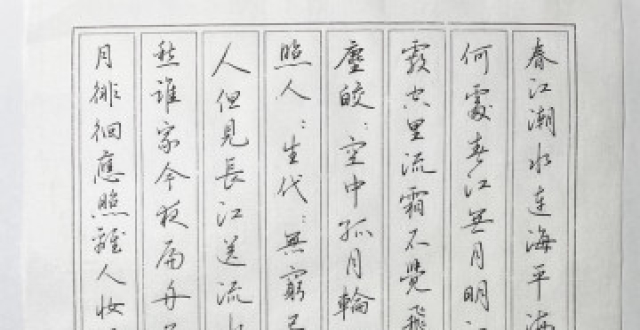 春江潮水連海平
何處春江無月明
霰空里流霜不覺飛
塵皎:空中孤月輪
照人:生代:無窮已
人但見長江送流水
愁誰家今夜扁舟
月徘徊應照離人妝